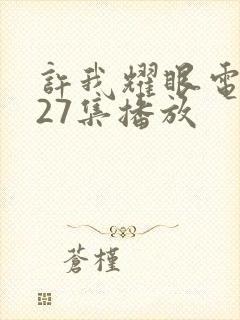 許我耀眼電
27集播放
蒼槿